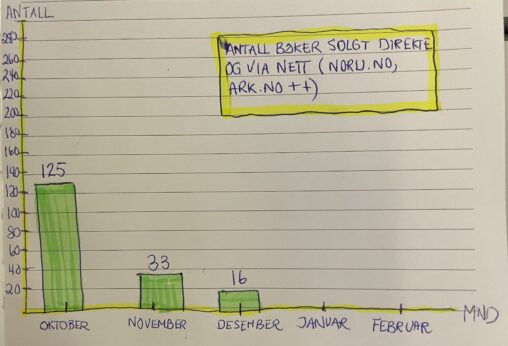 ANTALL
ANTALL BØKER SOLGT DIREKTE
OG VIA NETT (NORLI.NO,
ARK.NO ++)
280
260
240
220
200
180
160
140
120
100
80
60
40
20
125
33
16
OKTOBER
NOVEMBER
DESEMBER
JANUAR
FEBRUAR
MND